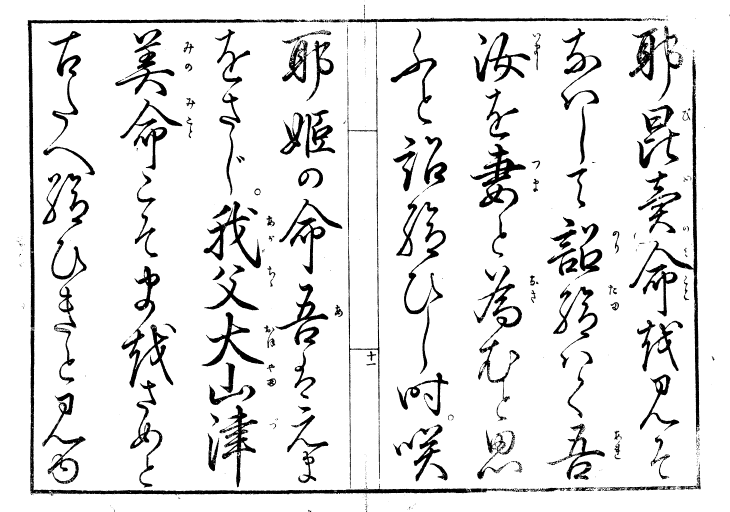 耶毘賣命越見そ
なハして詔給ハく吾
汝を妻と為むと思
ふと詔給ひし時。咲
耶姫の命吾はえま
をさじ。我父大山津
美命こそまをさめと
古たへ給ひきと見ゆ
十一